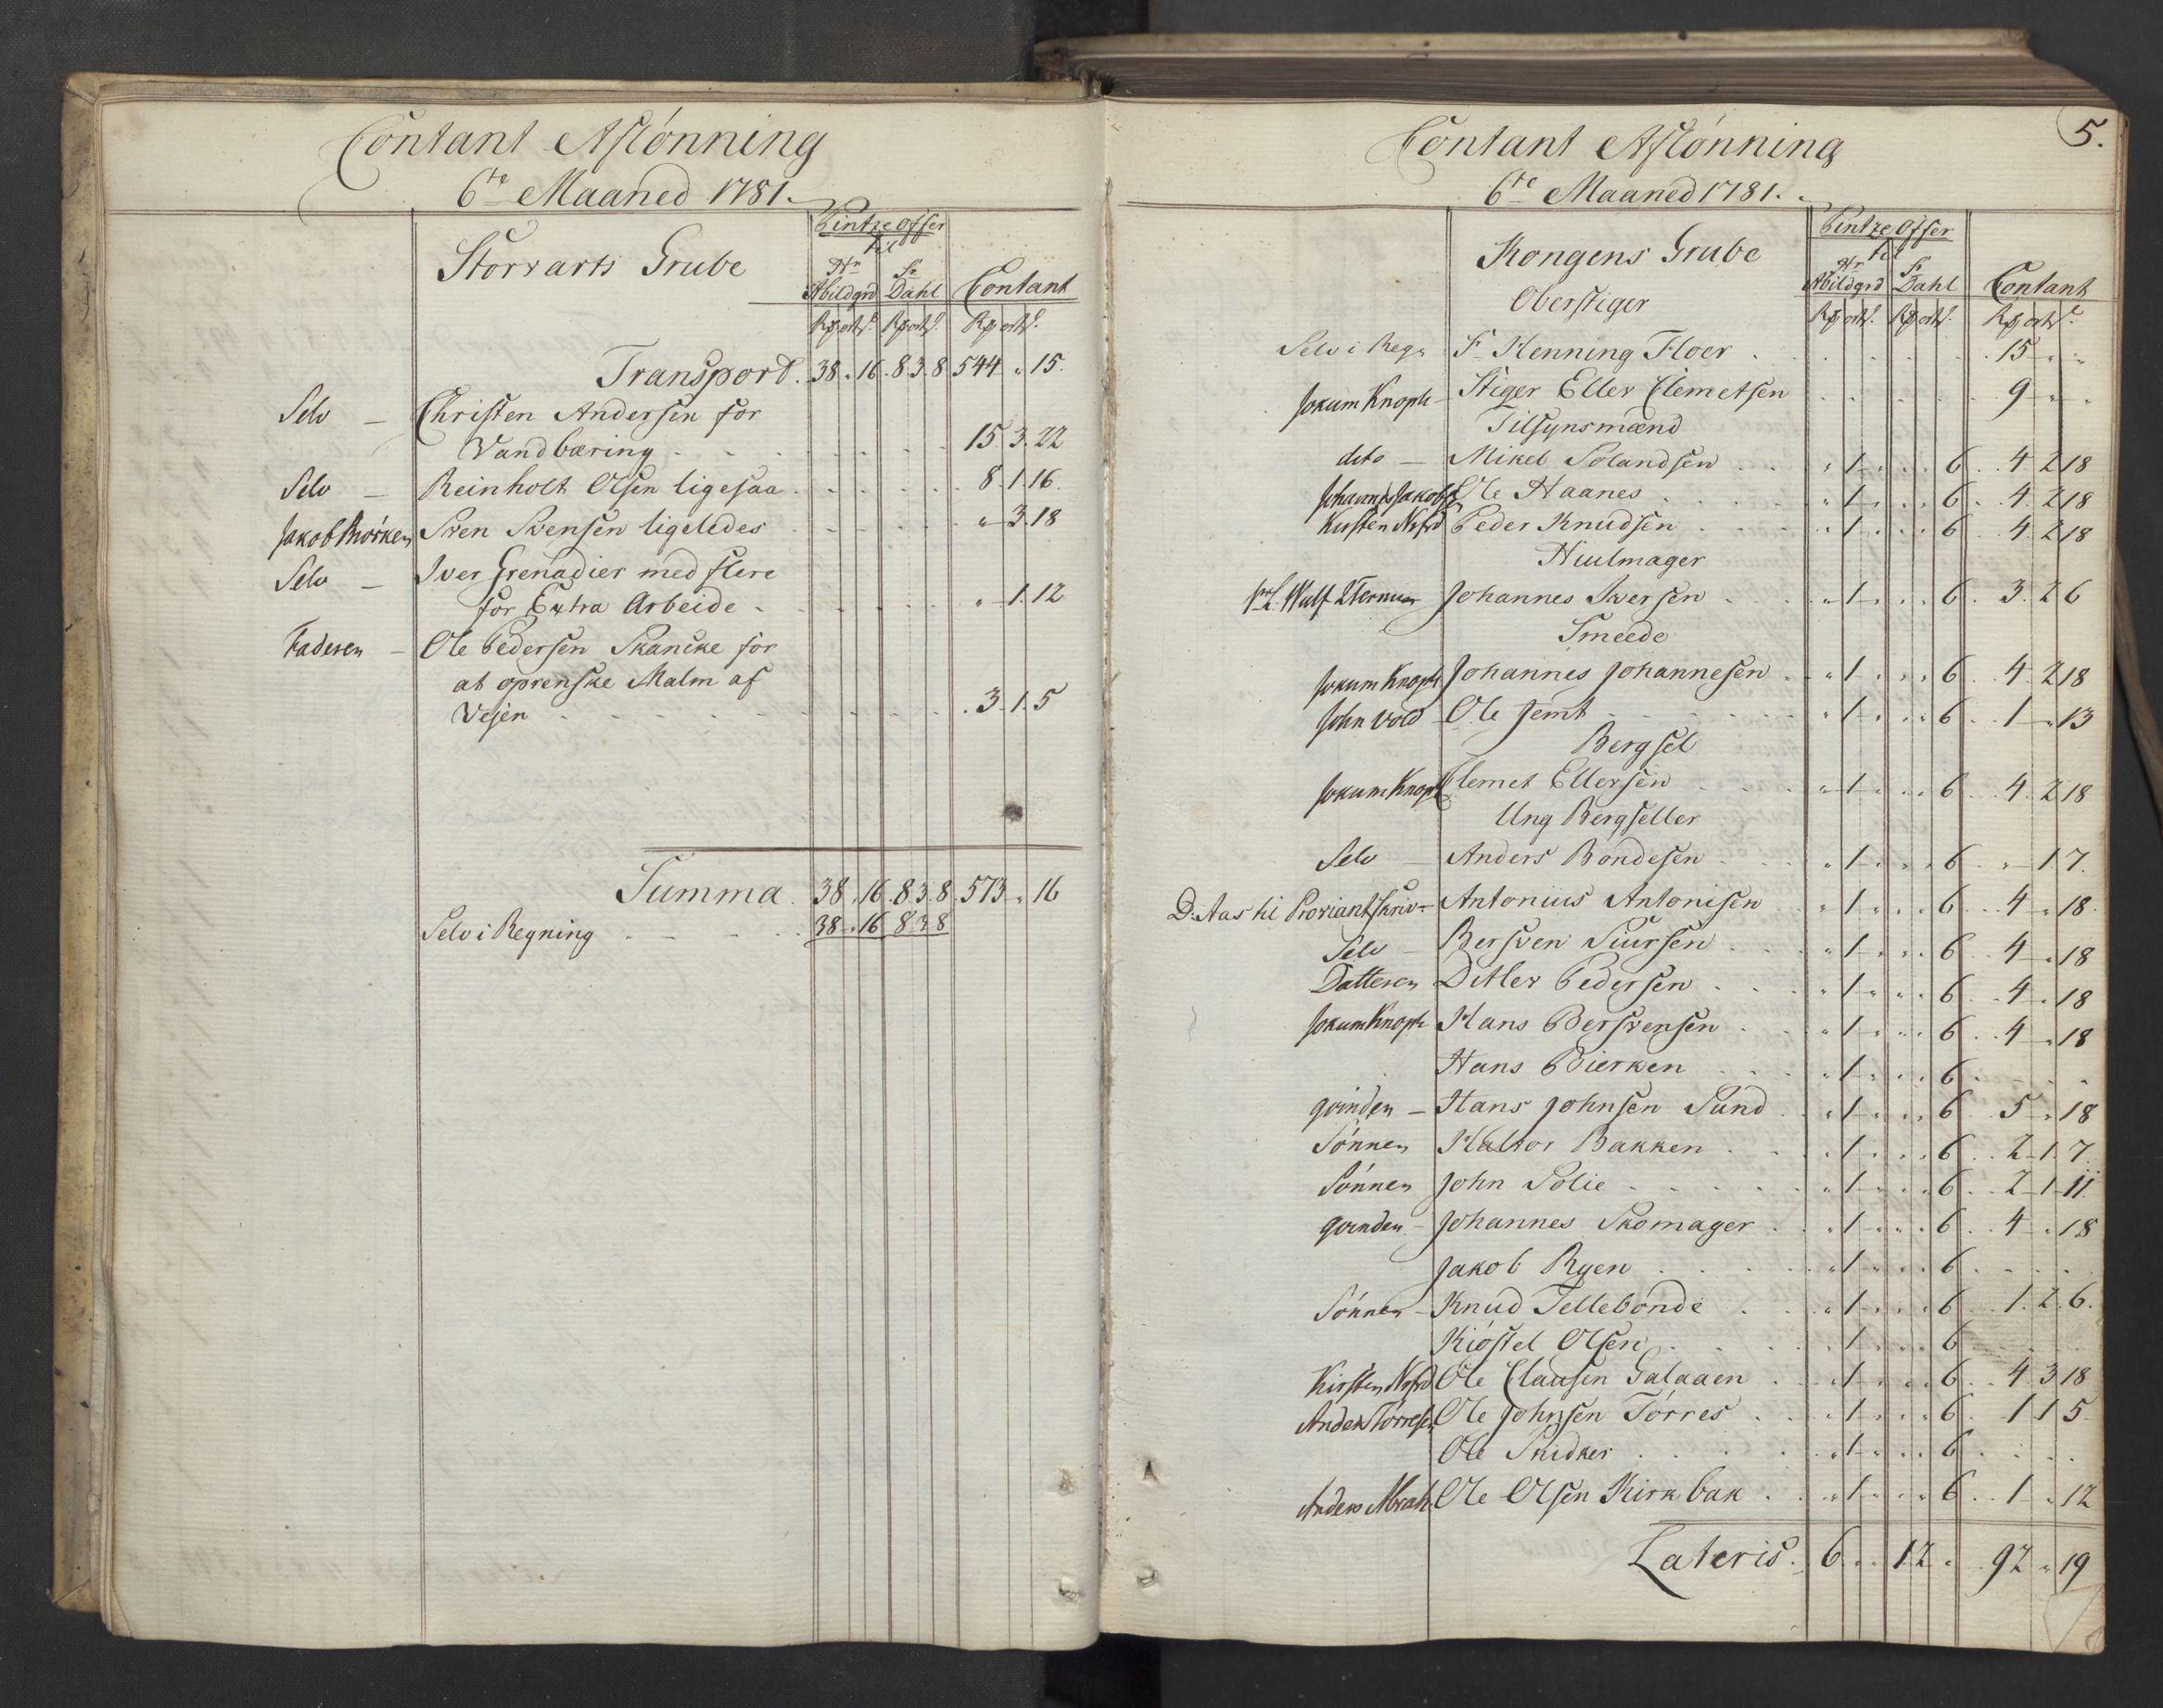 Contant Aflønning
6te Maaned 1781.
Storvarts Grube
Pintze Offer
til
Hr Abildgrd
Sr Dahl
Contant
Rd ort s. Rd ort s. Rd ort s.
Transport. 38 . 16 . 8 3 8 544 „ 15.
Selv — Christen Andersen for
Vandbæring . . . 15 3. 22
Selv — Reinholt Olsen ligesaa . . . 8. 1. 16.
Jakob Sven Svensen ligeledes . . . „ 3. 18
Selv — Iver Grenadier med flere
for Extra Arbeide . . . „ 1. 12
Faderen — Ole Pedersen Skancke for
at oprenske Malm af
Vejen . . . 3. 1. 5
Summa. 38 . 16 . 8. 3. 8. 573 „ 16
Selv i Regning . . . 38 „ 16 8 3 8
5.
Contant Aflønning
6te Maaned 1781.
Kongens Grube
Pintze Offer
til
Hr Abildgrd
Sr Dahl
Contant
Oberstiger
Rd ort s. Rd ort s. Rd ort s.
Selv i Regn Sr Henning Floer . . . 15 „ „
Jokum Knoph — Stiger Eller Clemetsen . . . 9 „ „
Tilsynsmænd
dito — Mikel Solandsen . . „ 1 „ . . 6 . . 4 2 18
Johannes Jakobs Ole Haanes . . „ 1 „ . . 6 . . 4. 2 18
Kirsten Nrfrd Peder Knudsen . . „ 1 „ . . 6 . . 4. 2 18
Hiulmager
Wulf Johannes Iversen . . „ 1 . . . 6. 3. 2 6
Smeede
Jokum Knoph Johannes Johannesen . . „ 1 . . . 6 . . 4 2 18
John Vold Ole Jemt . . . „ 1 . . . 6 . . 1 „ 13
Bergsel
Jokum Knoph Clemet Ellersen . . „ 1 . . . 6 . . 4. 2 18
Ung Bergseller
Selv — Anders Bondesen . . „ 1 . . . 6 . „ 1 7.
D: Aas til Proviantskriv— Antonius Antonisen . . „ 1 . . . 6 . . 4 „ 18.
Selv — Bersven Siursen . . „ 1 . . . 6 . . 4 „ 18
Datteren Ditlev Pedersen . . „ 1 „ . . 6 . . 4 „ 18
Jokum Knoph Hans Bersvensen . . „ 1 „ . . 6 . . 4 „ 18
Hans Bierken . . „ 1 „ . . 6 . . .
qvinden — Hans Johnsen Sund . . „ 1 . . . 6 . . 5 „ 18
Sønnen Haltor Bakken . . „ 1 . . . 6 . . 2 1. 7.
Sønnen John Solie . . . „ 1 . . . 6 . . 2 1 11.
qvinden — Johannes Skomager . . „ 1 . . . 6 . . 4 „ 18
Jakob Ryen . . „ 1 . . . 6 . . .
Sønnen — Knud Tellebonde . . „ 1 . . . 6 . 1. 2. 6.
Kiøstel Olsen . . „ 1 . . . 6 . . .
Kirsten Nrfrd Ole Clausen Galaaen . . „ 1 . . . 6 . . 4 3 18
Anders Torresen Ole Johnsen Törres . . „ 1 . . . 6 . . 1 1 5
Ole Snidker . . „ 1 „ . . 6 . . .
Anders Abrah. Ole Olsen Kirkbak . . „ 1 „ . . 6 . . 1 „ 12
Lateris. 6 . . 1 2 „ 92 „ 19